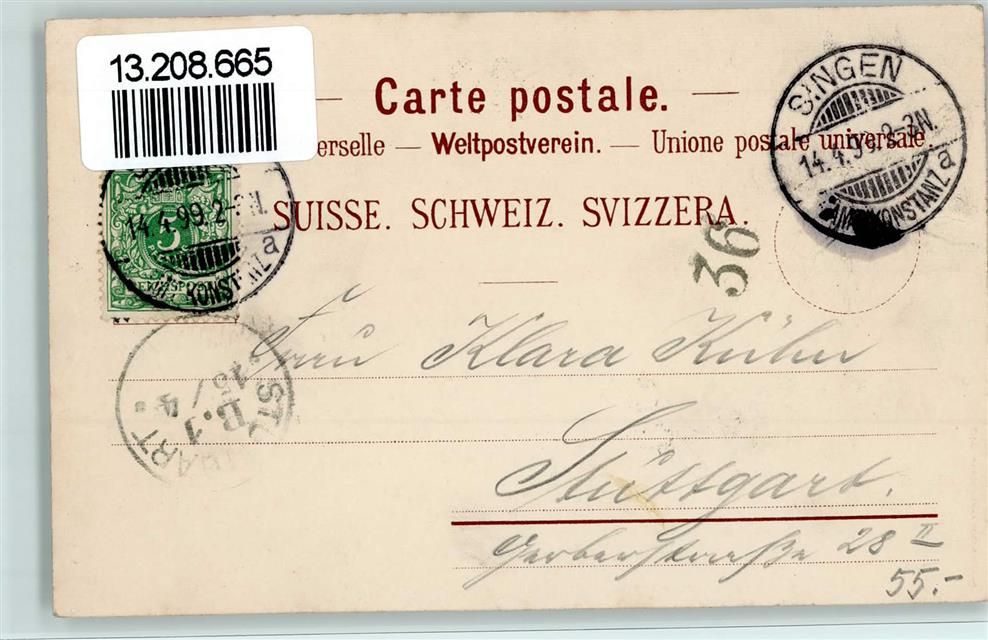 13.208.665
Carte postale.
erselle — Weltpostverein. — Unione postale universale.
SUISSE. SCHWEIZ. SVIZZERA.
SINGEN
14.4.99.2-3N.
KONSTANZ a
14.4.99.2-3N.
KONSTANZ a
5
REICHSPOST
36
Frau Klara Kühn
Stuttgart.
Gerberstraße 28 II
55.-